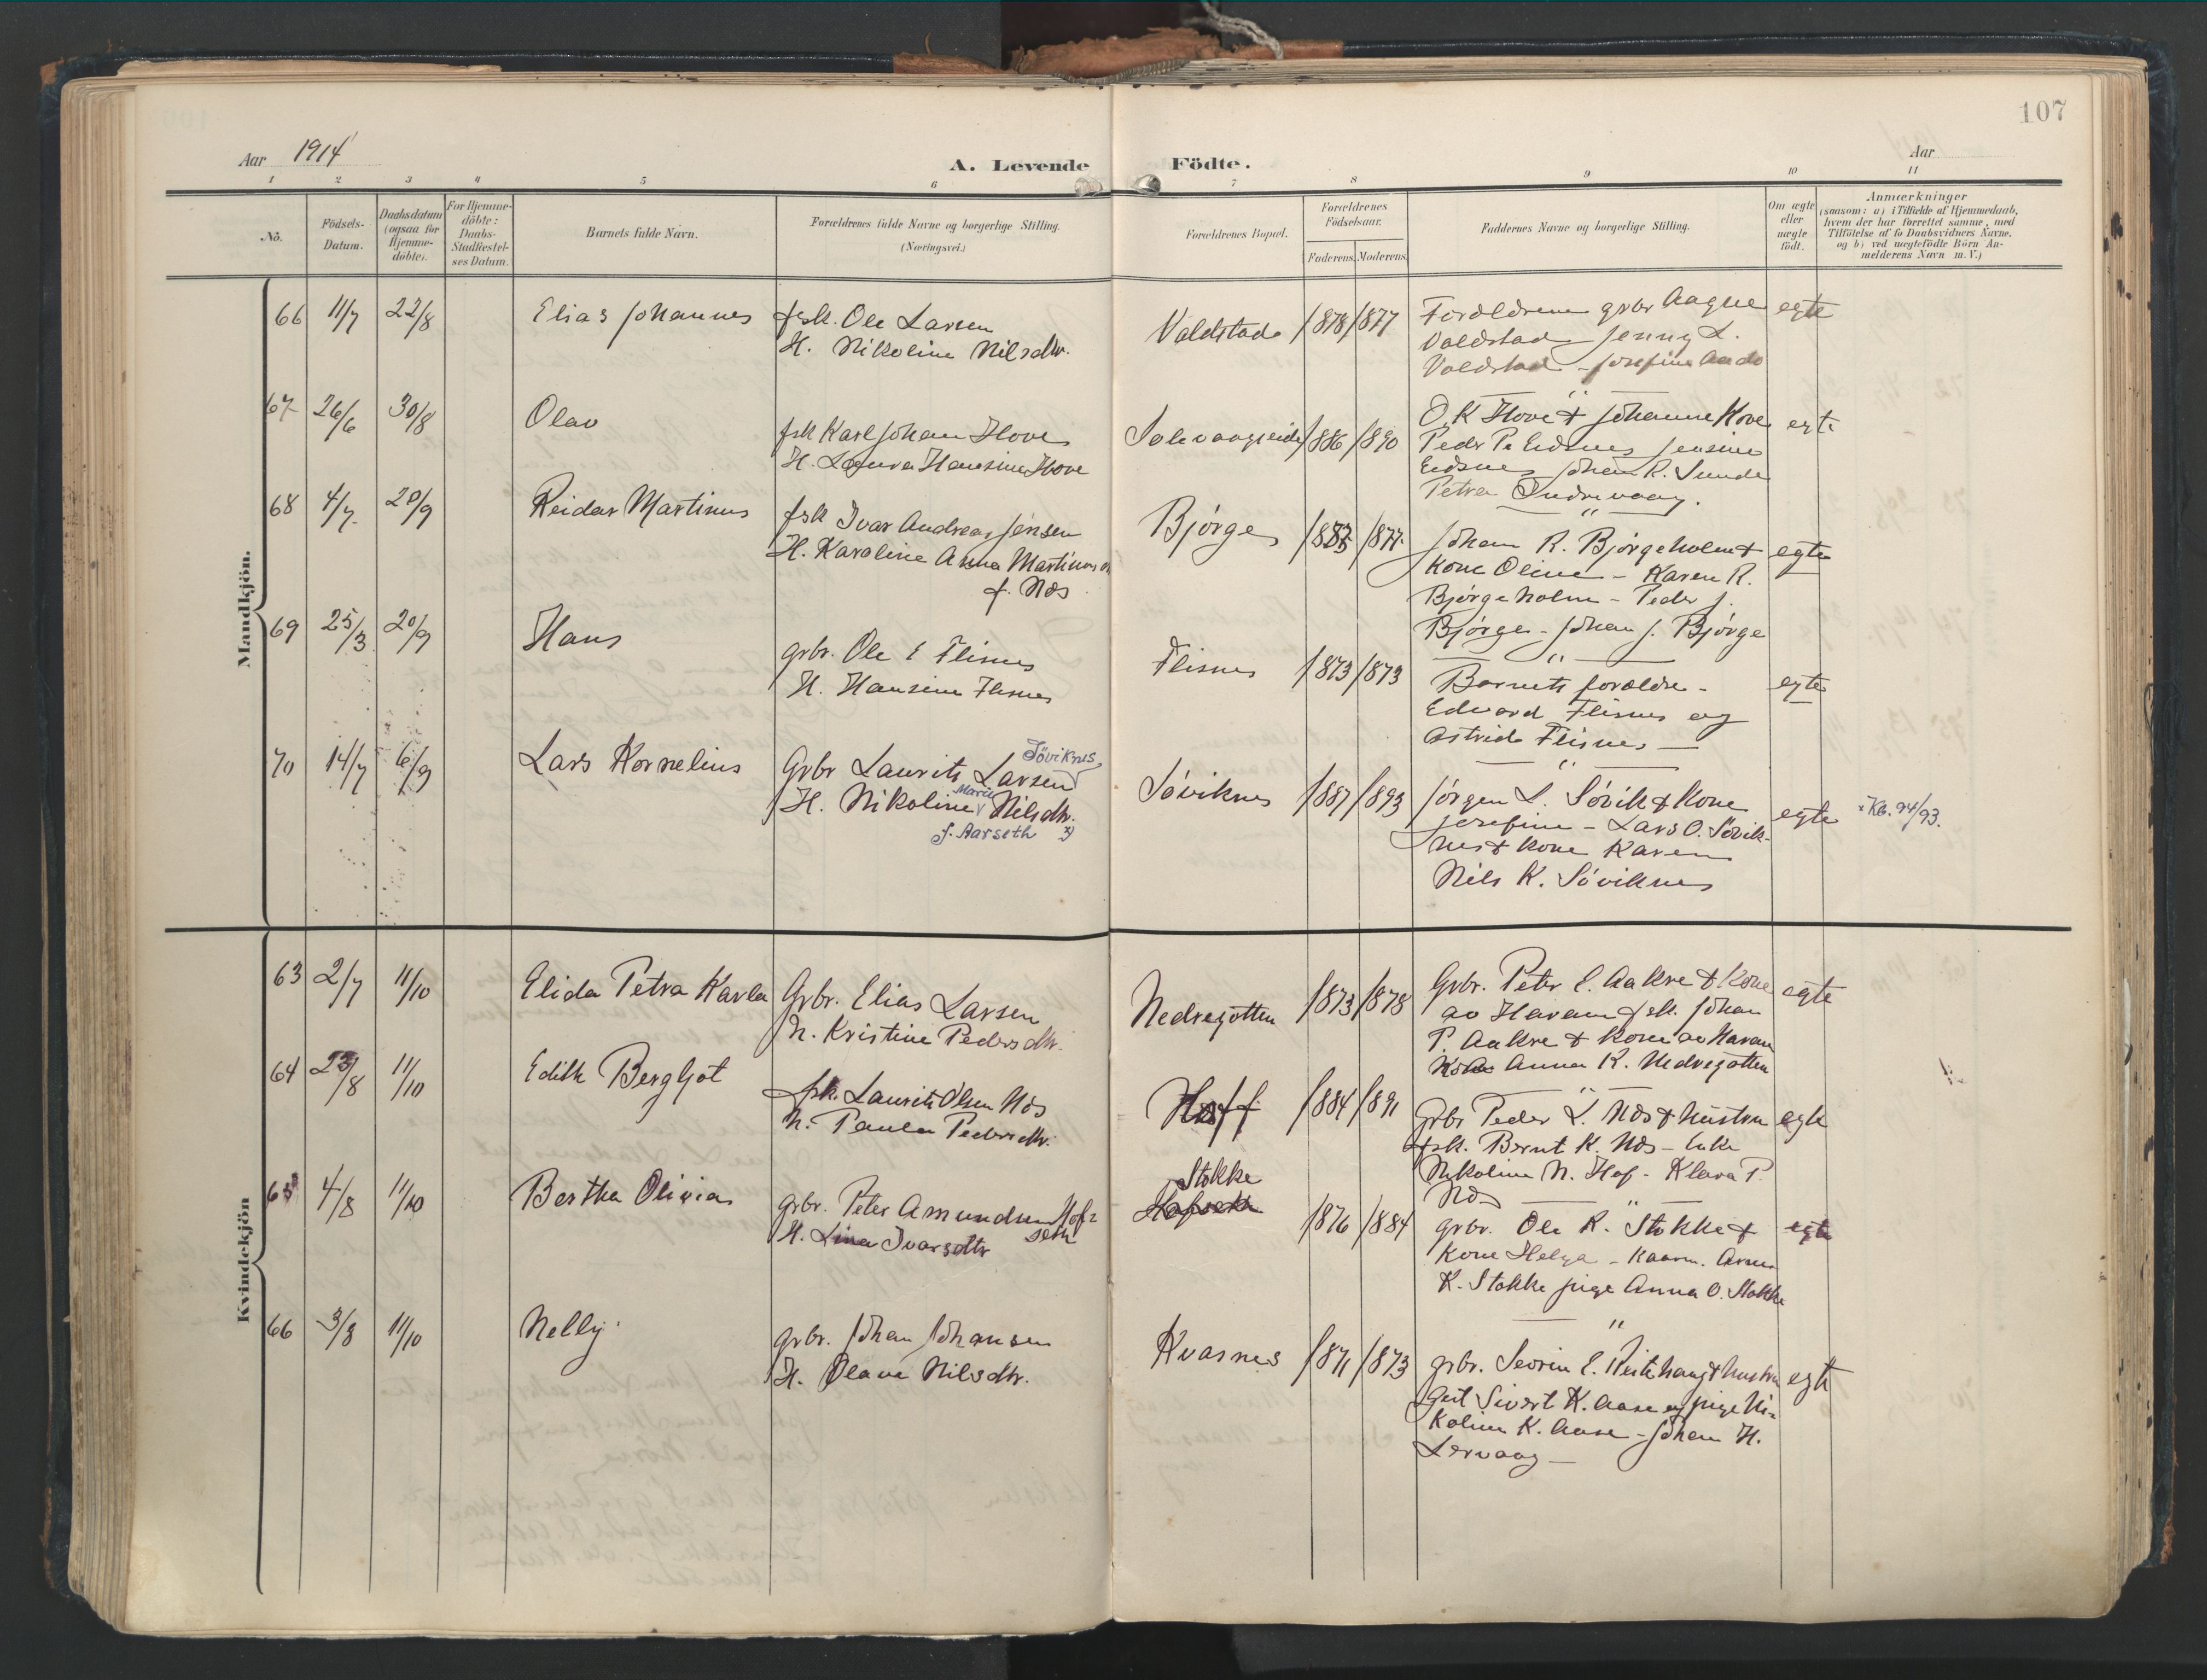 107
Aar 1914
A. Levende Födte.
Aar
1 2 3 4 5 6 7 8 9 10 11
No.
Födsels-Datum.
Daabsdatum (ogsaa for Hjemme-döbte).
For Hjemme-döbte: Daabs-Stadfæstel-ses Datum.
Barnets fulde Navn.
Forældrenes fulde Navne og borgerlige Stilling. (Næringsvei.)
Forældrenes Bopæl.
Forældrenes Födselsaar.
Faderens. Moderens.
Faddernes Navne og borgerlige Stilling.
Om ægte eller uægte födt.
Anmærkninger
(saasom: a) i Tilfælde af Hjemmedaab, hvem der har forrettet samme, med Tilföielse af to Daabsvidners Navne, og b) ved uægtefödte Börn An-melderens Navn m. V.)
Mandkjön.
66 11/7 22/8 Elias Johannes
fsk. Ole Larsen
H. Nikoline Nilsdtr.
Valdstad 1878 1877
Forældrene grbr Aagne
Valdstad Jenny L.
Valdstad - Josefine
egte
67 26/6 30/8 Olav
fsk Karl Johan Hove
H. Laura Hansine Hove
1886 1890
O. K Hove & Johanne Hove
Peder P. Eidsnes Jensine
Eidsnes Johan R. Sunde
Petra Indrevaag.
egte
68 4/7 20/9 Reidar Martinus
fsk Ivar Andreas Jensen
H. Karoline Anna
f. Næs
Bjørge 1877
Johan R. Bjørgeholm &
Kone Oline - Karen R.
Bjørgeholm - Peder J.
Bjørge - Johan J. Bjørge
egte
69 25/3 20/9 Hans
grbr. Ole E Flisnes
H. Hansine Flisnes
Flisnes 1873 1873
Barnets forældre -
Edvard Flisnes og
Astrid Flisnes
egte
70 14/7 6/9 Lars Kornelius
Grbr Laurits Larsen Söviknes
H. Nikoline Marie Nilsdtr.
f. Aarseth x)
Søviknes 1887 1893
Jørgen L. Søvik & Kone
Josefine - Lars O. Søvik-
nes & Kone Karen
Nils K. Søviknes
egte
x Kb. 94/93.
Kvindekjön
63 2/7 11/10 Elida Petra Karla
Grbr. Elias Larsen
H. Kristine Pedersdtr.
Nedregotten 1873 1878
Grbr. Peter E. Aakre & Kone
av Haram fsk. Johan
P. Aakre & Kone av Haram
Anna K. Nedregotten
egte
64 23/8 11/10 Edith Bergljot
fsk. Laurits Olsen Næs
H. Paula Pedersdtr.
Hoff 1884 1891
Grbr Peder L. Næs & hustru
fsk. Bernt K. Næs - enke
Nikoline N. Hof - Klara P.
Næs
egte
65 4/8 11/10 Bertha Olivia
grbr. Peter Amundsen Hof-
seth
H. Lina Ivarsdtr
Stokke
Hofseth
1876 1884
grbr. Ole R. Stokke &
Kone Helga - Arne
K. Stokke pige Anna O. Stokke
egte
66 3/8 11/10 Nelly
grbr. Johan Johansen
H. Olava Nilsdtr.
Kvasnes 1871 1873
grbr. Severin E. Reitehaug & hustru
Gut Sivert K. Aase og pige Ni-
koline K. Aase - Johan H.
Lervaag
egte